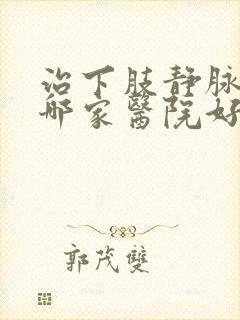 治下肢静脉
哪家醫院好
郭茂雙